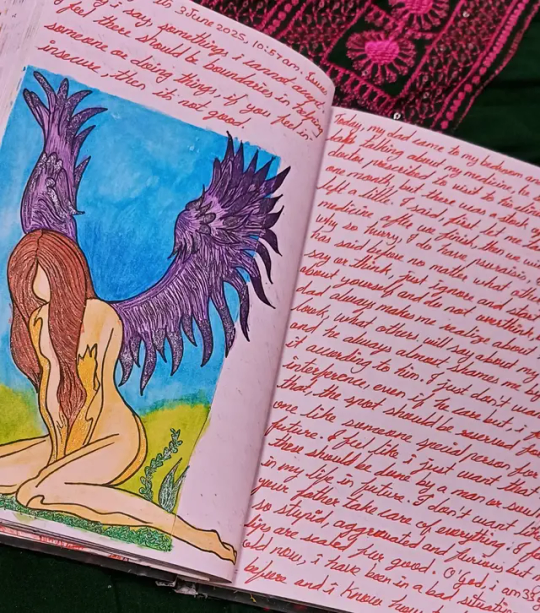 3 June 2025, 10:53 am.
if i say, something i cannot accept.
I feel there should be boundaries in helping
someone or doing things, if you feel in
insecure, then its not good.
Today, my dad came to my bedroom and
talking about my medicine, he
doctor prescribed to visit to
one month, but there was a
left a little. I said, first let me
medicine after we finish, then we
why so hurry, I do have psoriasis,
has said before no matter what other
say or think, just ignore and
about yourself and do not overthink,
dad always makes me realize about
louts, what others will say about my
and he always almost shames me
it according to him. i just don't want
interference, even if he care but i
that the spot should be reserved
one like someone special person for
future. I feel like i just want that
these should be done by a man or
in my life in future. i don't want
your father take care of everything. i feel
so stupid, aggravated and furious but
lips are sealed for good. O god, i am 33
old now, i have been in a bad situation
before and i know how